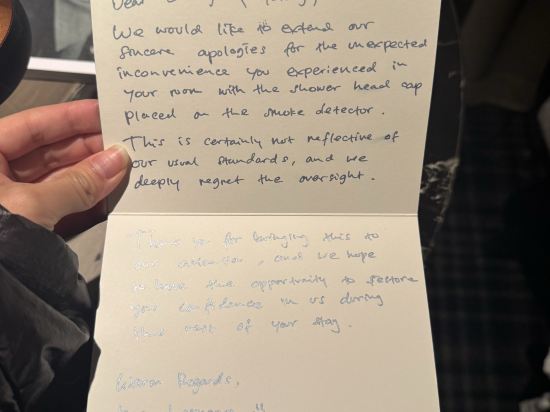 Dear
We would like to extend our
sincere apologies for the unexpected
inconvenience you experienced in
your room with the shower head cap
placed on the smoke detector.
This is certainly not reflective of
our usual standards, and we
deeply regret the oversight.
Thank you for bringing this to
our attention, and we hope
to have the opportunity to restore
your confidence in us during
the rest of your stay.
Regards,